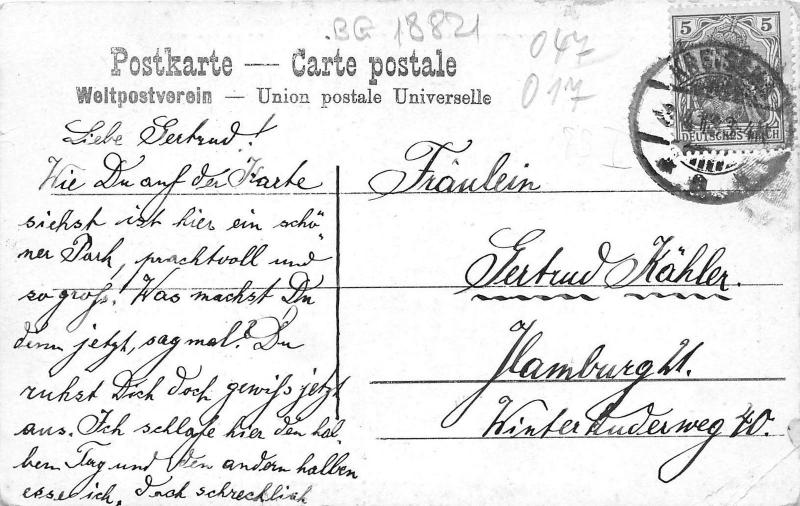 BG 18821
047
017
Postkarte — Carte postale
Weltpostverein — Union postale Universelle
5 5
DEUTSCHES REICH
Liebe Gertrud!
Wie Du auf der Karte
siehst ist hier ein schö-
ner Park, prachtvoll und
so groß! Was machst Du
denn jetzt, sag mal? Du
ruhst Dich doch gewiß jetzt
aus. Ich schlafe hier den hal-
ben Tag und den andern halben
esse ich, doch schrecklich
Fräulein
Gertrud Kähler.
Hamburg 21.
Winterhuderweg 40.